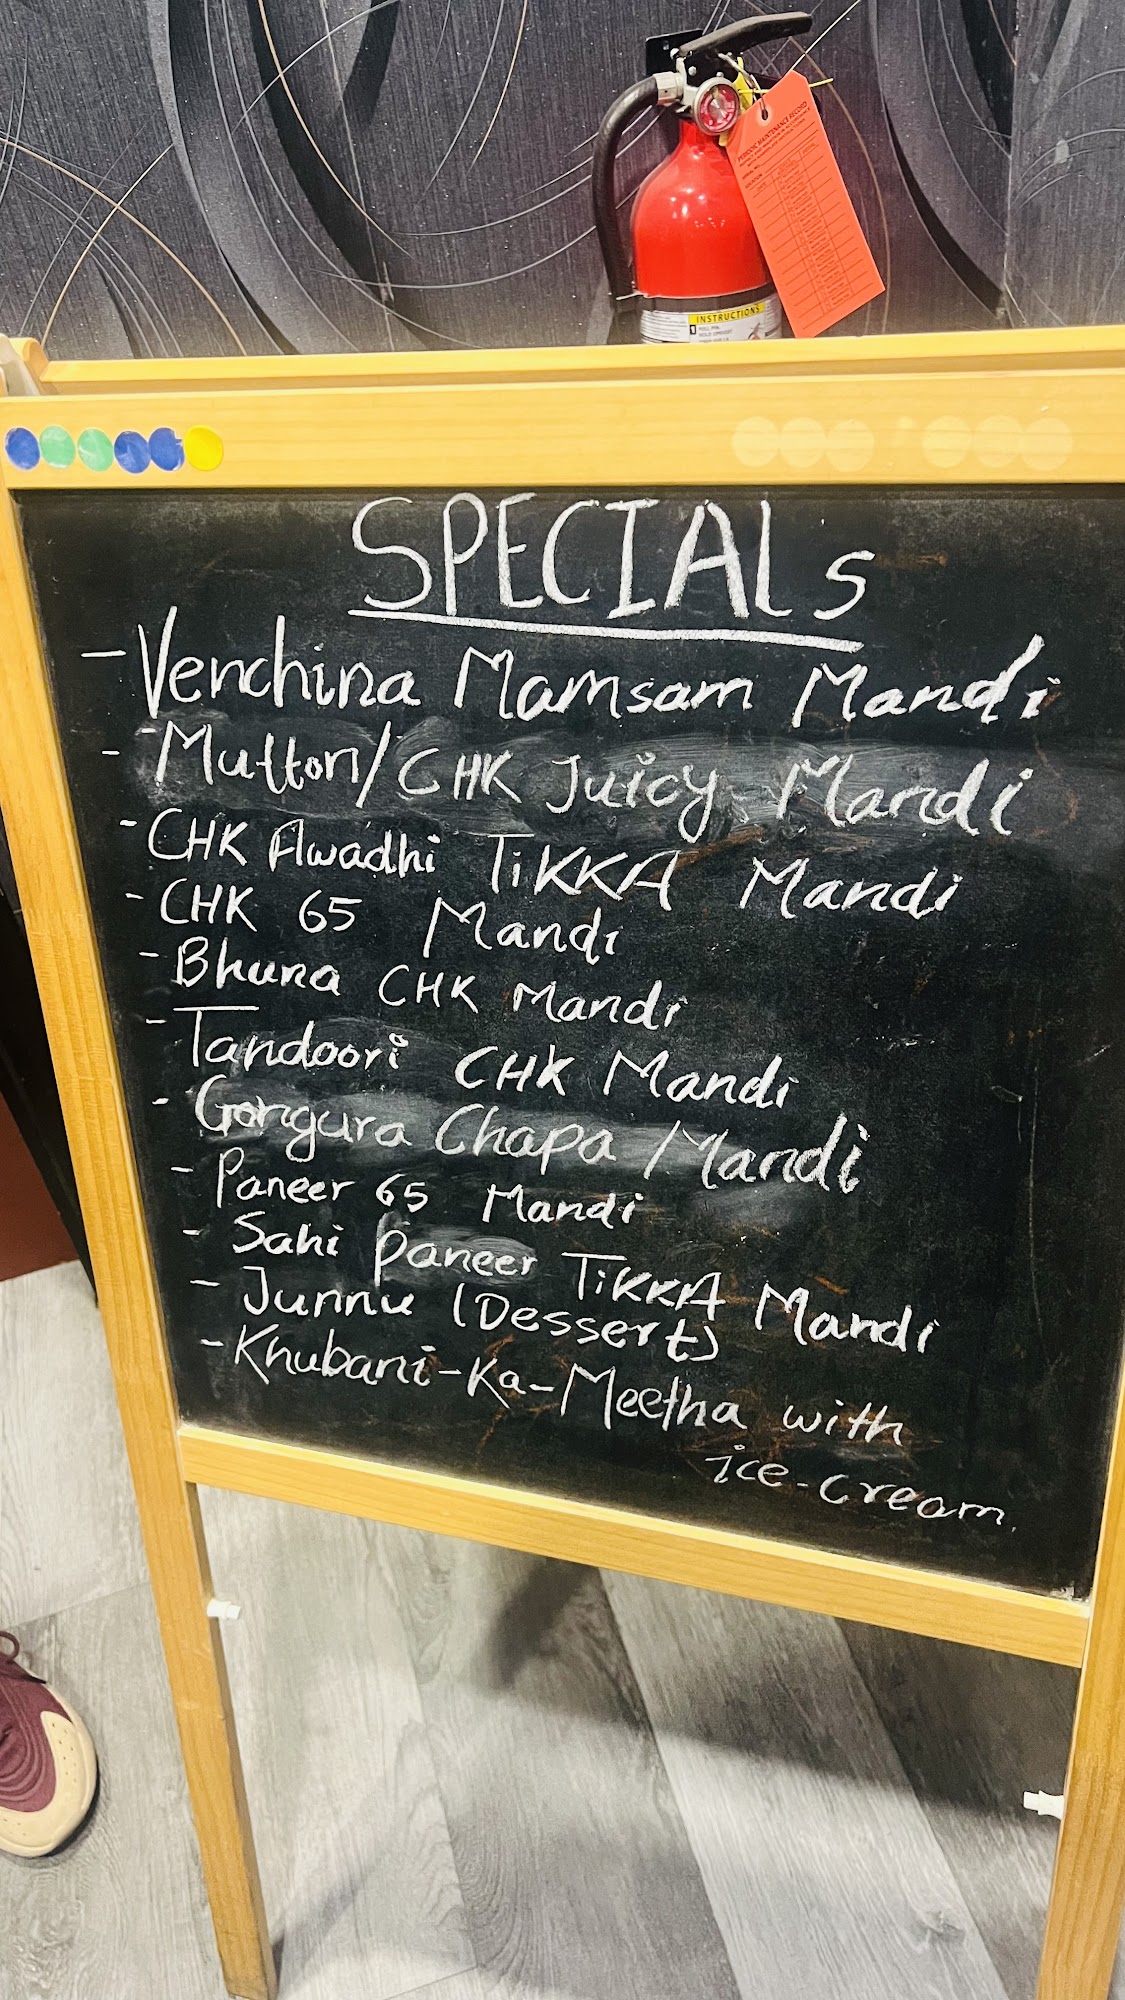 PERIODIC MAINTENANCE RECORD
INSTRUCTIONS
SPECIALs
- Venchina Mamsam Mandi
- Mutton/CHK Juicy Mandi
- CHK Awadhi TiKKA Mandi
- CHK 65 Mandi
- Bhuna CHK Mandi
- Tandoori CHK Mandi
- Gongura Chapa Mandi
- Paneer 65 Mandi
- Sahi Paneer TiKKA Mandi
- Junnu (Dessert)
- Khubani-Ka-Meetha with
ice-cream.